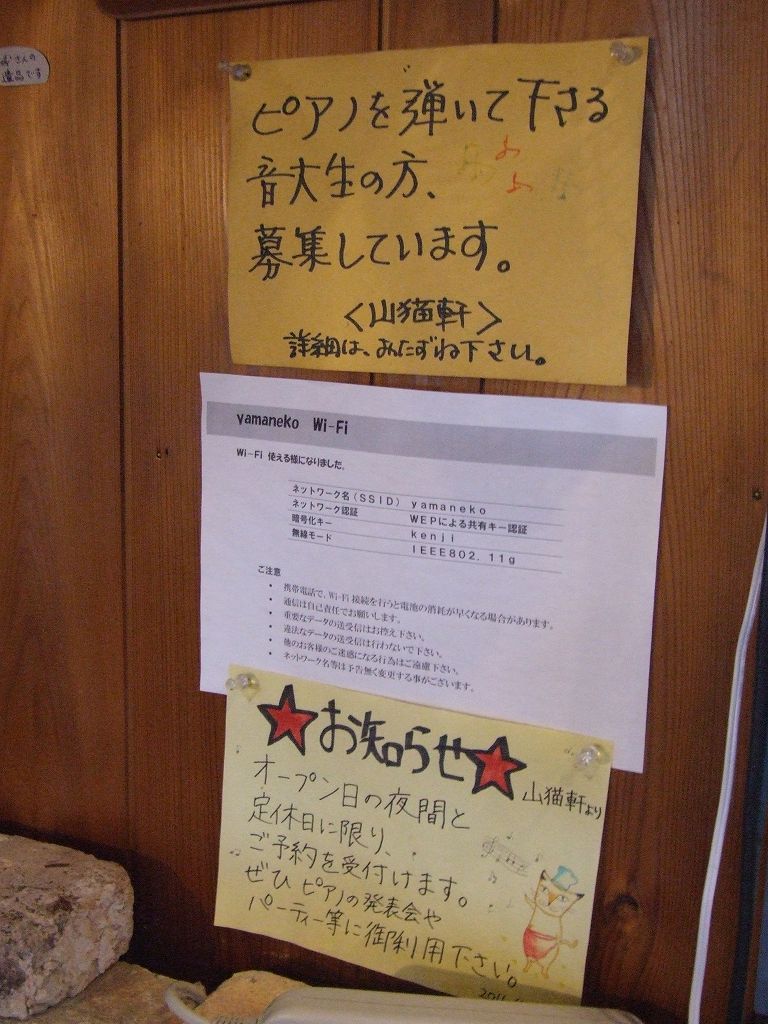 遺品です
ピアノを弾いて下さる
音大生の方、
募集しています。
〈山猫軒〉
詳細は、おたずね下さい。
yamaneko Wi-Fi
Wi-Fi 使える様になりました。
ネットワーク名(SSID) yamaneko
ネットワーク認証 WEPによる共有キー認証
暗号化キー kenji
無線モード IEEE802.11g
ご注意
• 携帯電話で、Wi-Fi 接続を行うと電池の消耗が早くなる場合があります。
• 通信は自己責任でお願いします。
• 重要なデータの送受信はお控え下さい。
• 違法なデータの送受信は行わないで下さい。
• 他のお客様のご迷惑になる行為はご遠慮下さい。
• ネットワーク名等は予告無く変更する事がございます。
★お知らせ★
山猫軒より
オープン日の夜間と
定休日に限り、
ご予約を受付けます。
ぜひ ピアノの発表会や
パーティー等に御利用下さい。